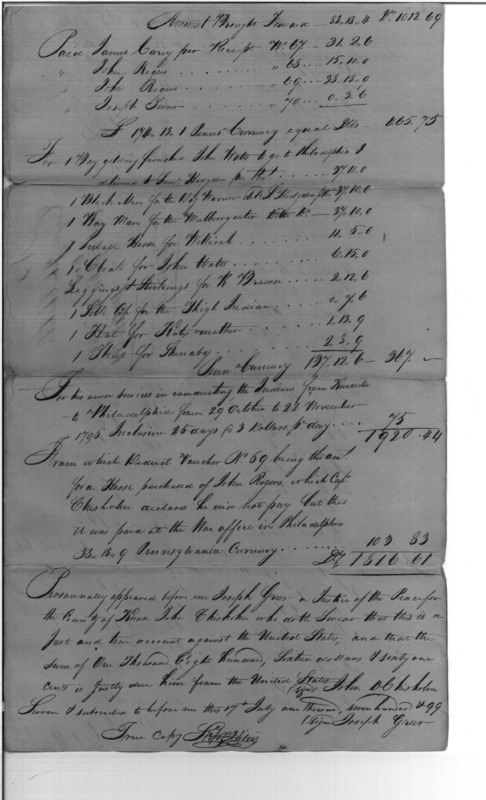 Amount Brought Forward — 33.15.0 Drs 1012.69
Paid James Carey per Receipt No 67 — 31.2.6
" John Rogers " 68 — 15.11.0
" John Rogers " 69 — 33.15.0
" Joseph " 70 — 0.2.6
£ 174.13.1 Penns Currency equal Dlls — 465.75
For 1 Bay gelding furnished John Watts to go to Philadelphia &
returned to 37.10.0
1 Black Mare for the Boy Warner 37.10.0
1 Bay Mare for the 37.10.0
1 Small Horse for 11.5.0
1 Cloak for John Watts 6.15.0
Leggings & Stockings for R 2.12.6
1 for the Thigh Indian 0.7.6
1 Hat for Katy mother 1.13.9
1 for 2.5.9
Penn Currency 137.12.6 — 367.—
For his own Services in conducting the Indians from Knoxville
to Philadelphia from 29 October to 22 November
1796 Inclusive 25 days @ 3 Dollars pr day — 75
1920.44
From which Deduct Voucher No 69 being the amt
for a Horse purchased of John Rogers, which Capt
Chisholm declares he did not pay but that
it was paid at the War office in Philadelphia
33..15..9 Pennsylvania Currency 103.83
Drs 1816.61
Personally appeared before me Joseph Greer a Justice of the Peace for
the County of Knox John Chisholm who doth Swear that this is a
Just and true account against the United States, and that the
Sum of One Thousand Eight hundred, Sixteen dollars & sixty one
cents is justly due him from the United States
(signd John D Chisholm
Sworn & subscribed to before me this 17th July one Thousand, seven hundred & 99
(signd Joseph Greer
True Copy